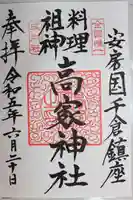 安房国千倉鎮座
料理
祖神
高家神社
奉拝
令和五年六月二十日